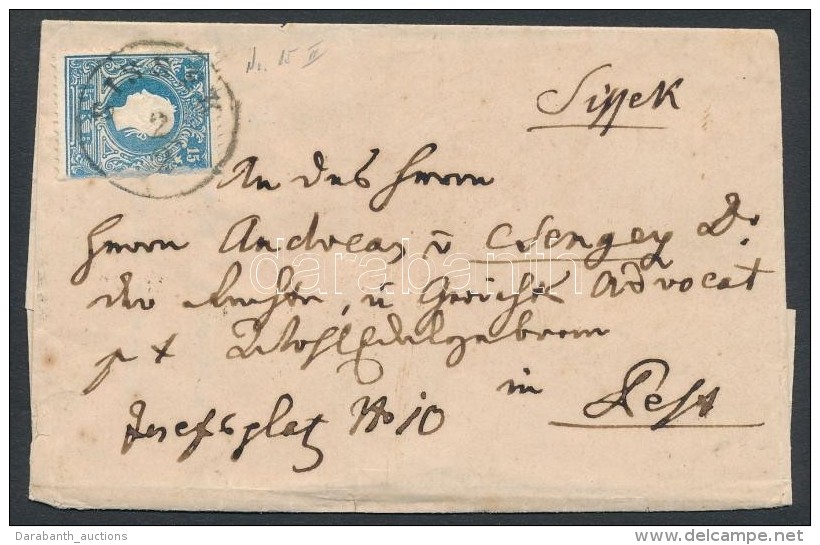 No. 15 II
SISSEK
15
Sissek
An des Herrn
Herrn Andreas v Csengey Dr
der Rechte, u Gerichts Advocat
Wohledelgeboren
in Pest
Josefsplatz No 10
darabanth
Darabanth_auctions
delcampe.net